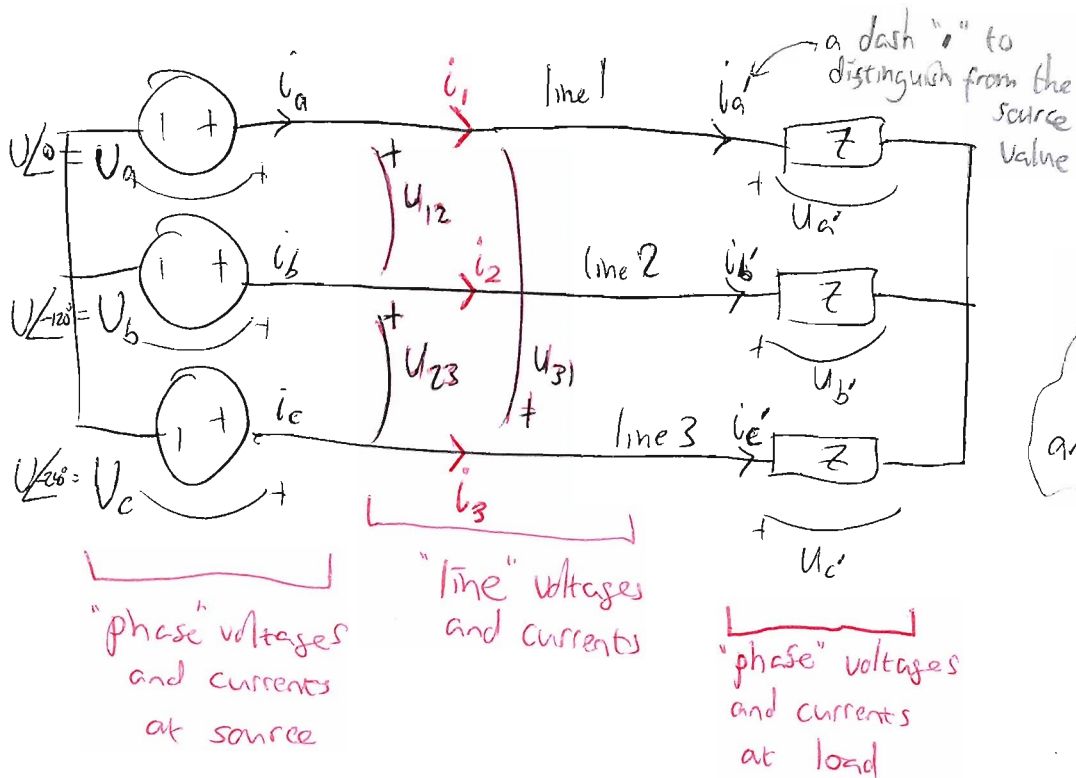 a dash "'" to
distinguish from the
source
value
i_a
i_1
line 1
i_a'
U∠0 = U_a
+
+
u_12
Z
+
u_a'
i_b
i_2
line 2
i_b'
U∠-120° = U_b
+
+
+
u_23
u_31
+
Z
+
u_b'
i_c
line 3
i_c'
U∠-240° = U_c
+
+
i_3
Z
+
u_c'
"phase" voltages
and currents
at source
"line" voltages
and currents
"phase" voltages
and currents
at load